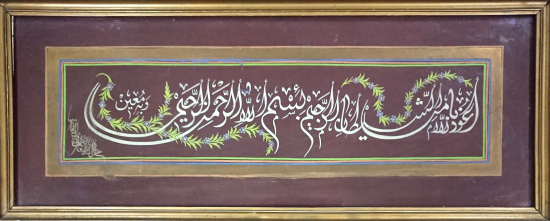 أعوذ بالله من الشيطان الرجيم بسم الله الرحمن الرحيم وبه نستعين